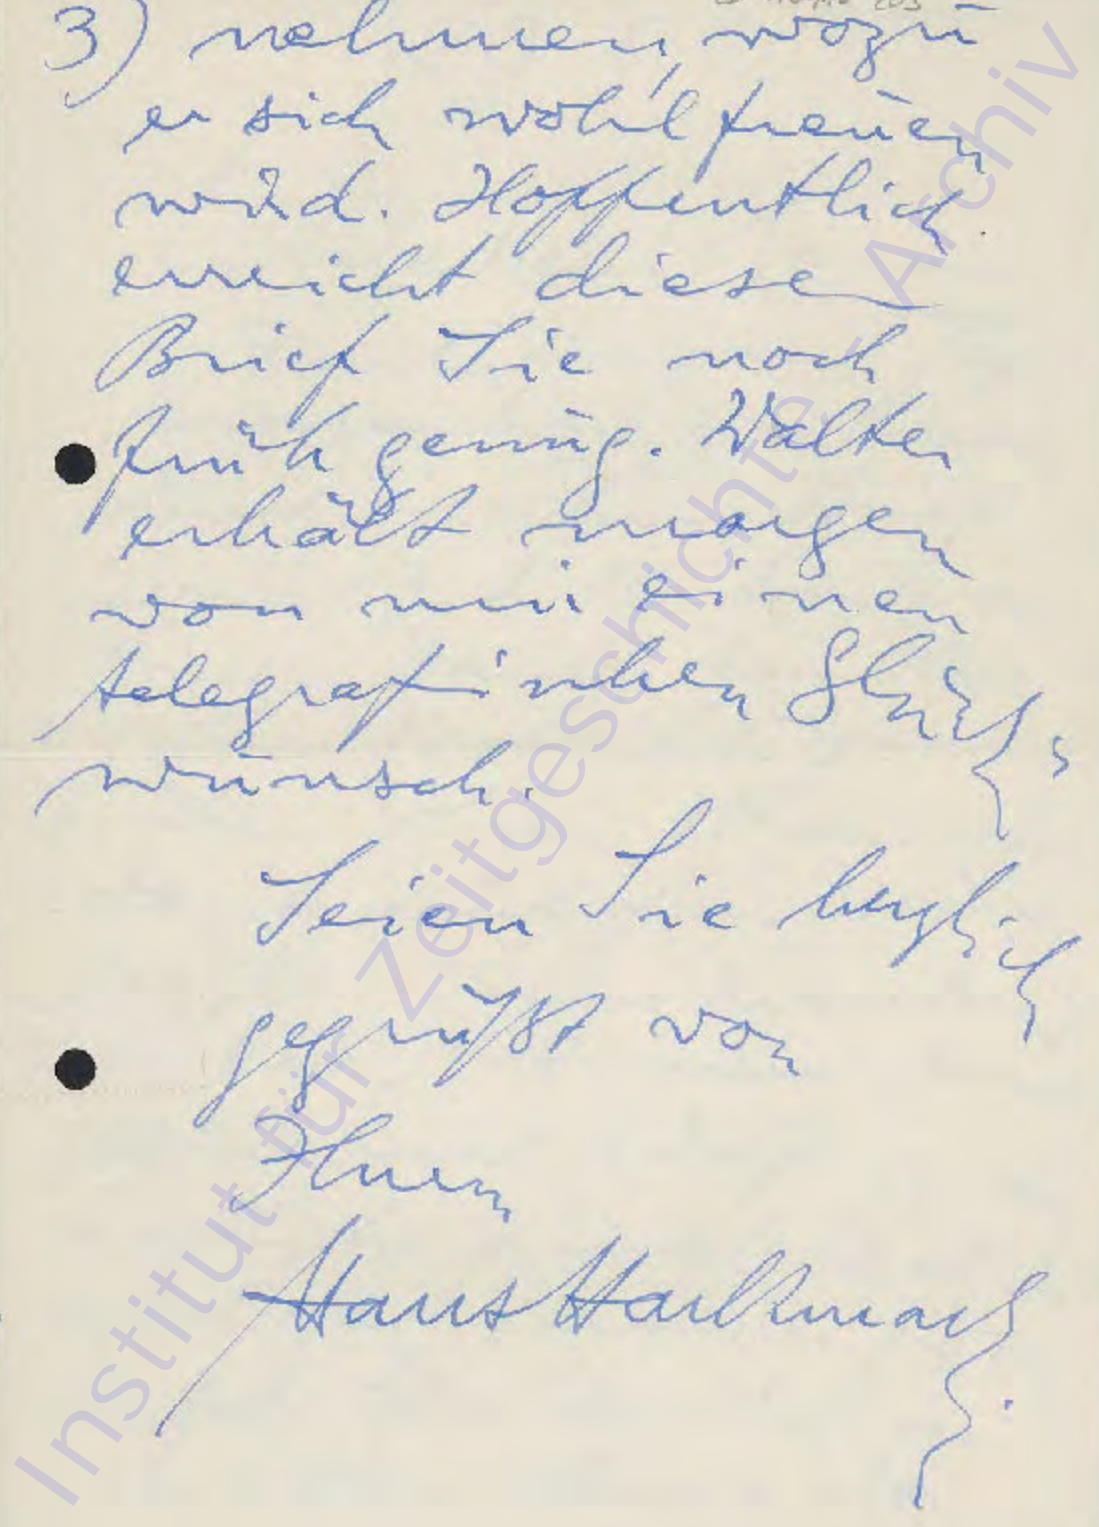 3) nehmen, wozu
er sich wohl freuen
wird. Hoffentlich
erreicht dieser
Brief Sie noch
früh genug. Walter
erhält morgen
von mir einen
telegrafischen Glück-
wunsch.
Seien Sie herzlich
gegrüßt von
Ihrem
Hans
Institut für Zeitgeschichte - Archiv